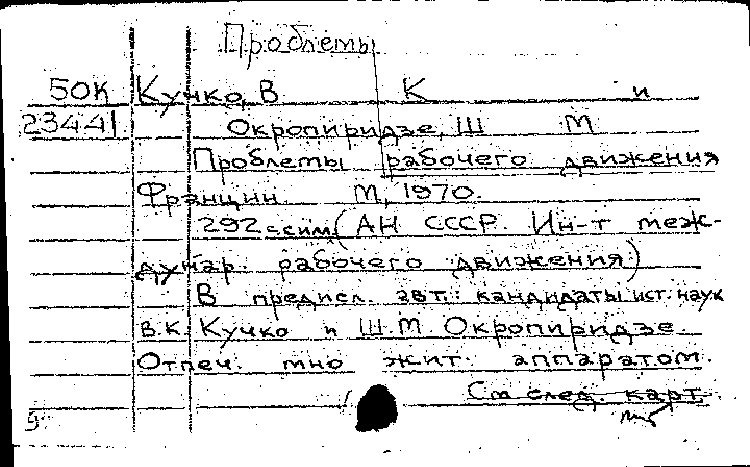 Проблемы
50К Кучко, В К и
23441 Окропиридзе, Ш М
Проблемы рабочего движения
Франции. М, 1970.
292 с. сим. (АН СССР. Ин-т меж-
дунар. рабочего движения)
В предисл. авт.: кандидаты ист. наук
В.К. Кучко и Ш.М. Окропиридзе.
Отпеч. множит. аппаратом.
См след. карт.